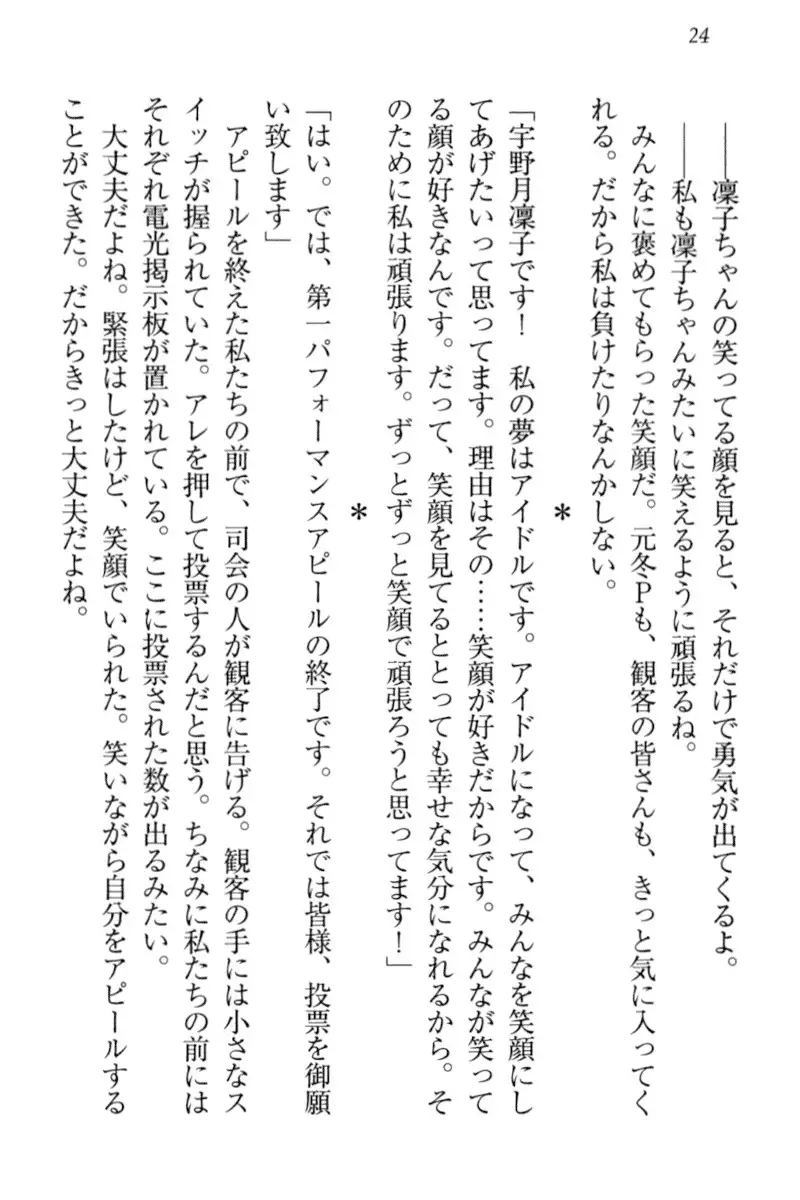 24
――凜子ちゃんの笑ってる顔を見ると、それだけで勇気が出てくるよ。
――私も凜子ちゃんみたいに笑えるように頑張るね。
みんなに褒めてもらった笑顔だ。元冬Pも、観客の皆さんも、きっと気に入ってく
れる。だから私は負けたりなんかしない。
*
「宇野月凜子です！　私の夢はアイドルです。アイドルになって、みんなを笑顔にし
てあげたいって思ってます。理由はその……笑顔が好きだからです。みんなが笑って
る顔が好きなんです。だって、笑顔を見てるととっても幸せな気分になれるから。そ
のために私は頑張ります。ずっとずっと笑顔で頑張ろうと思ってます！」
*
「はい。では、第一パフォーマンスアピールの終了です。それでは皆様、投票を御願
い致します」
アピールを終えた私たちの前で、司会の人が観客に告げる。観客の手には小さなス
イッチが握られていた。アレを押して投票するんだと思う。ちなみに私たちの前には
それぞれ電光掲示板が置かれている。ここに投票された数が出るみたい。
大丈夫だよね。緊張はしたけど、笑顔でいられた。笑いながら自分をアピールする
ことができた。だからきっと大丈夫だよね。